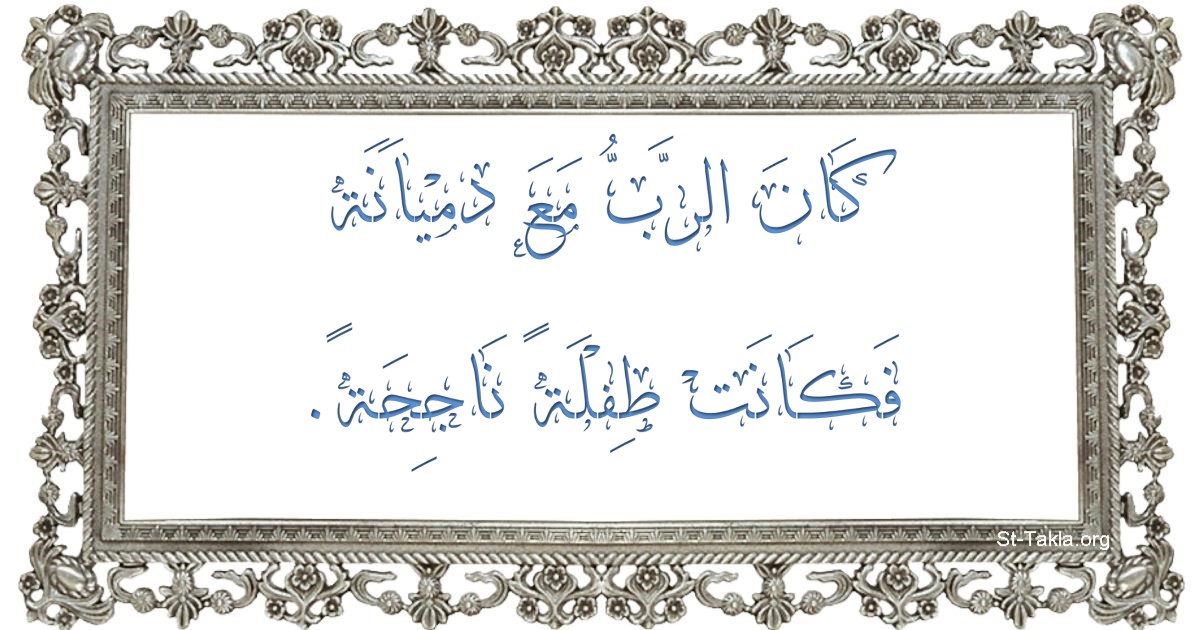 كَانَ الرَّبُّ مَعَ دمْيَانَة
فَكَانَتْ طِفْلَةً نَاجِحَةً.
St-Takla.org